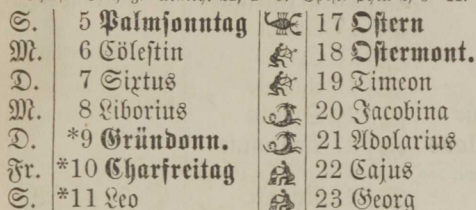 S. 5 Palmsonntag 17 Ostern
M. 6 Cölestin 18 Ostermont.
D. 7 Sixtus 19 Timeon
M. 8 Liborius 20 Jacobina
D. *9 Gründonn. 21 Adolarius
Fr. *10 Charfreitag 22 Cajus
S. *11 Leo 23 Georg